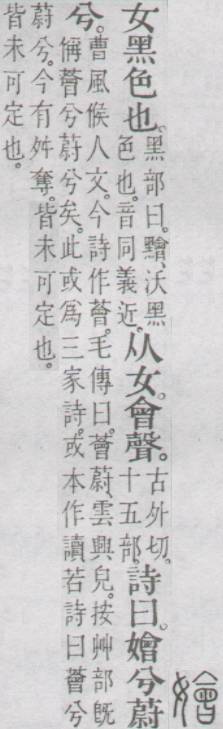 嬒
女黑色也。黑部曰。䵳、沃黑色也。音同義近。从女。會聲。古外切。十五部。詩曰。嬒兮蔚
兮。曹風候人文。今詩作薈。毛傳曰。薈蔚、雲興皃。按艸部旣
偁薈兮蔚兮矣。此或爲三家詩。或本作讀若詩曰薈兮
蔚兮。今有舛奪。皆未可定也。
皆未可定也。